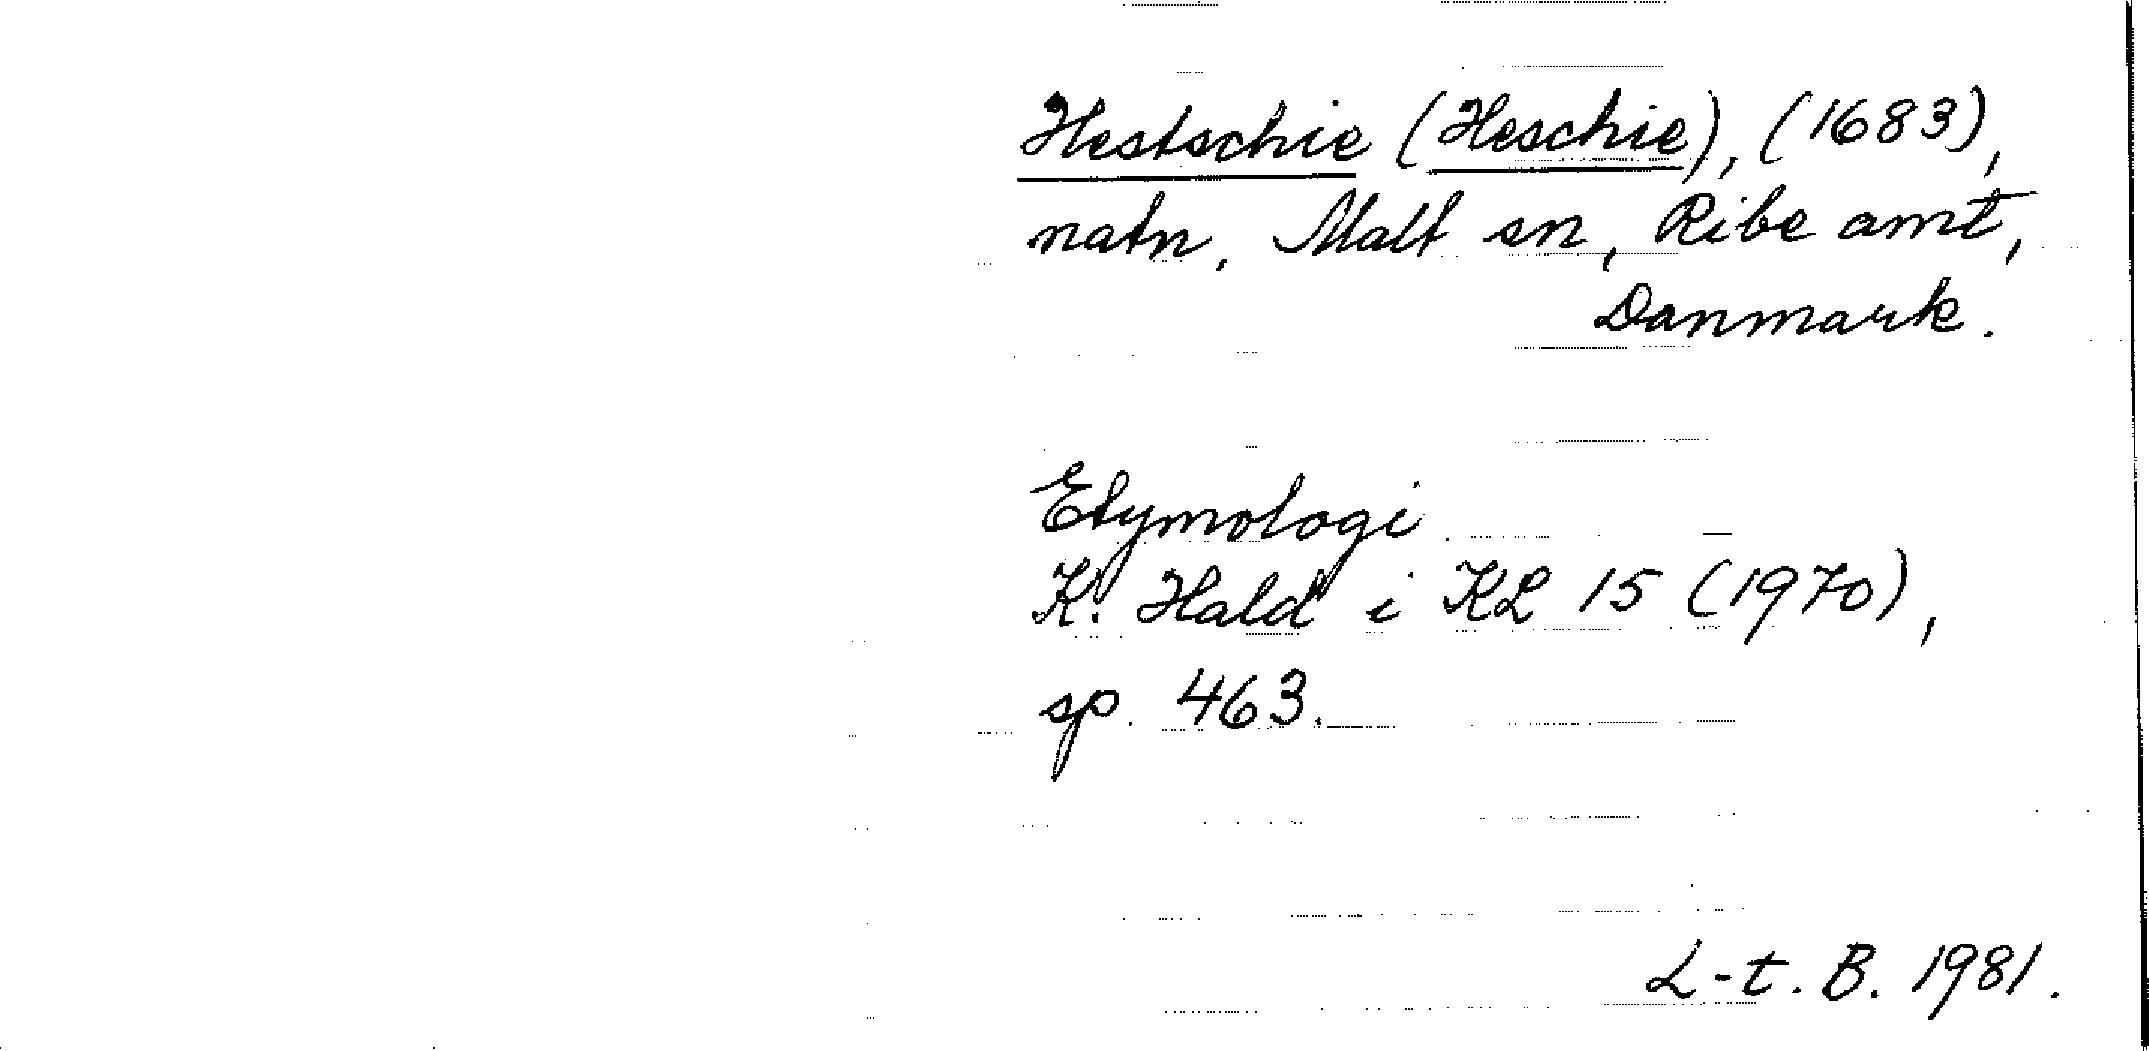 Hestschie (Heschie), (1683),
natn, Malt sn, Ribe amt,
Danmark.
Etymologi
K. Hald i KL 15 (1970),
sp. 463.
L-t. B. 1981.